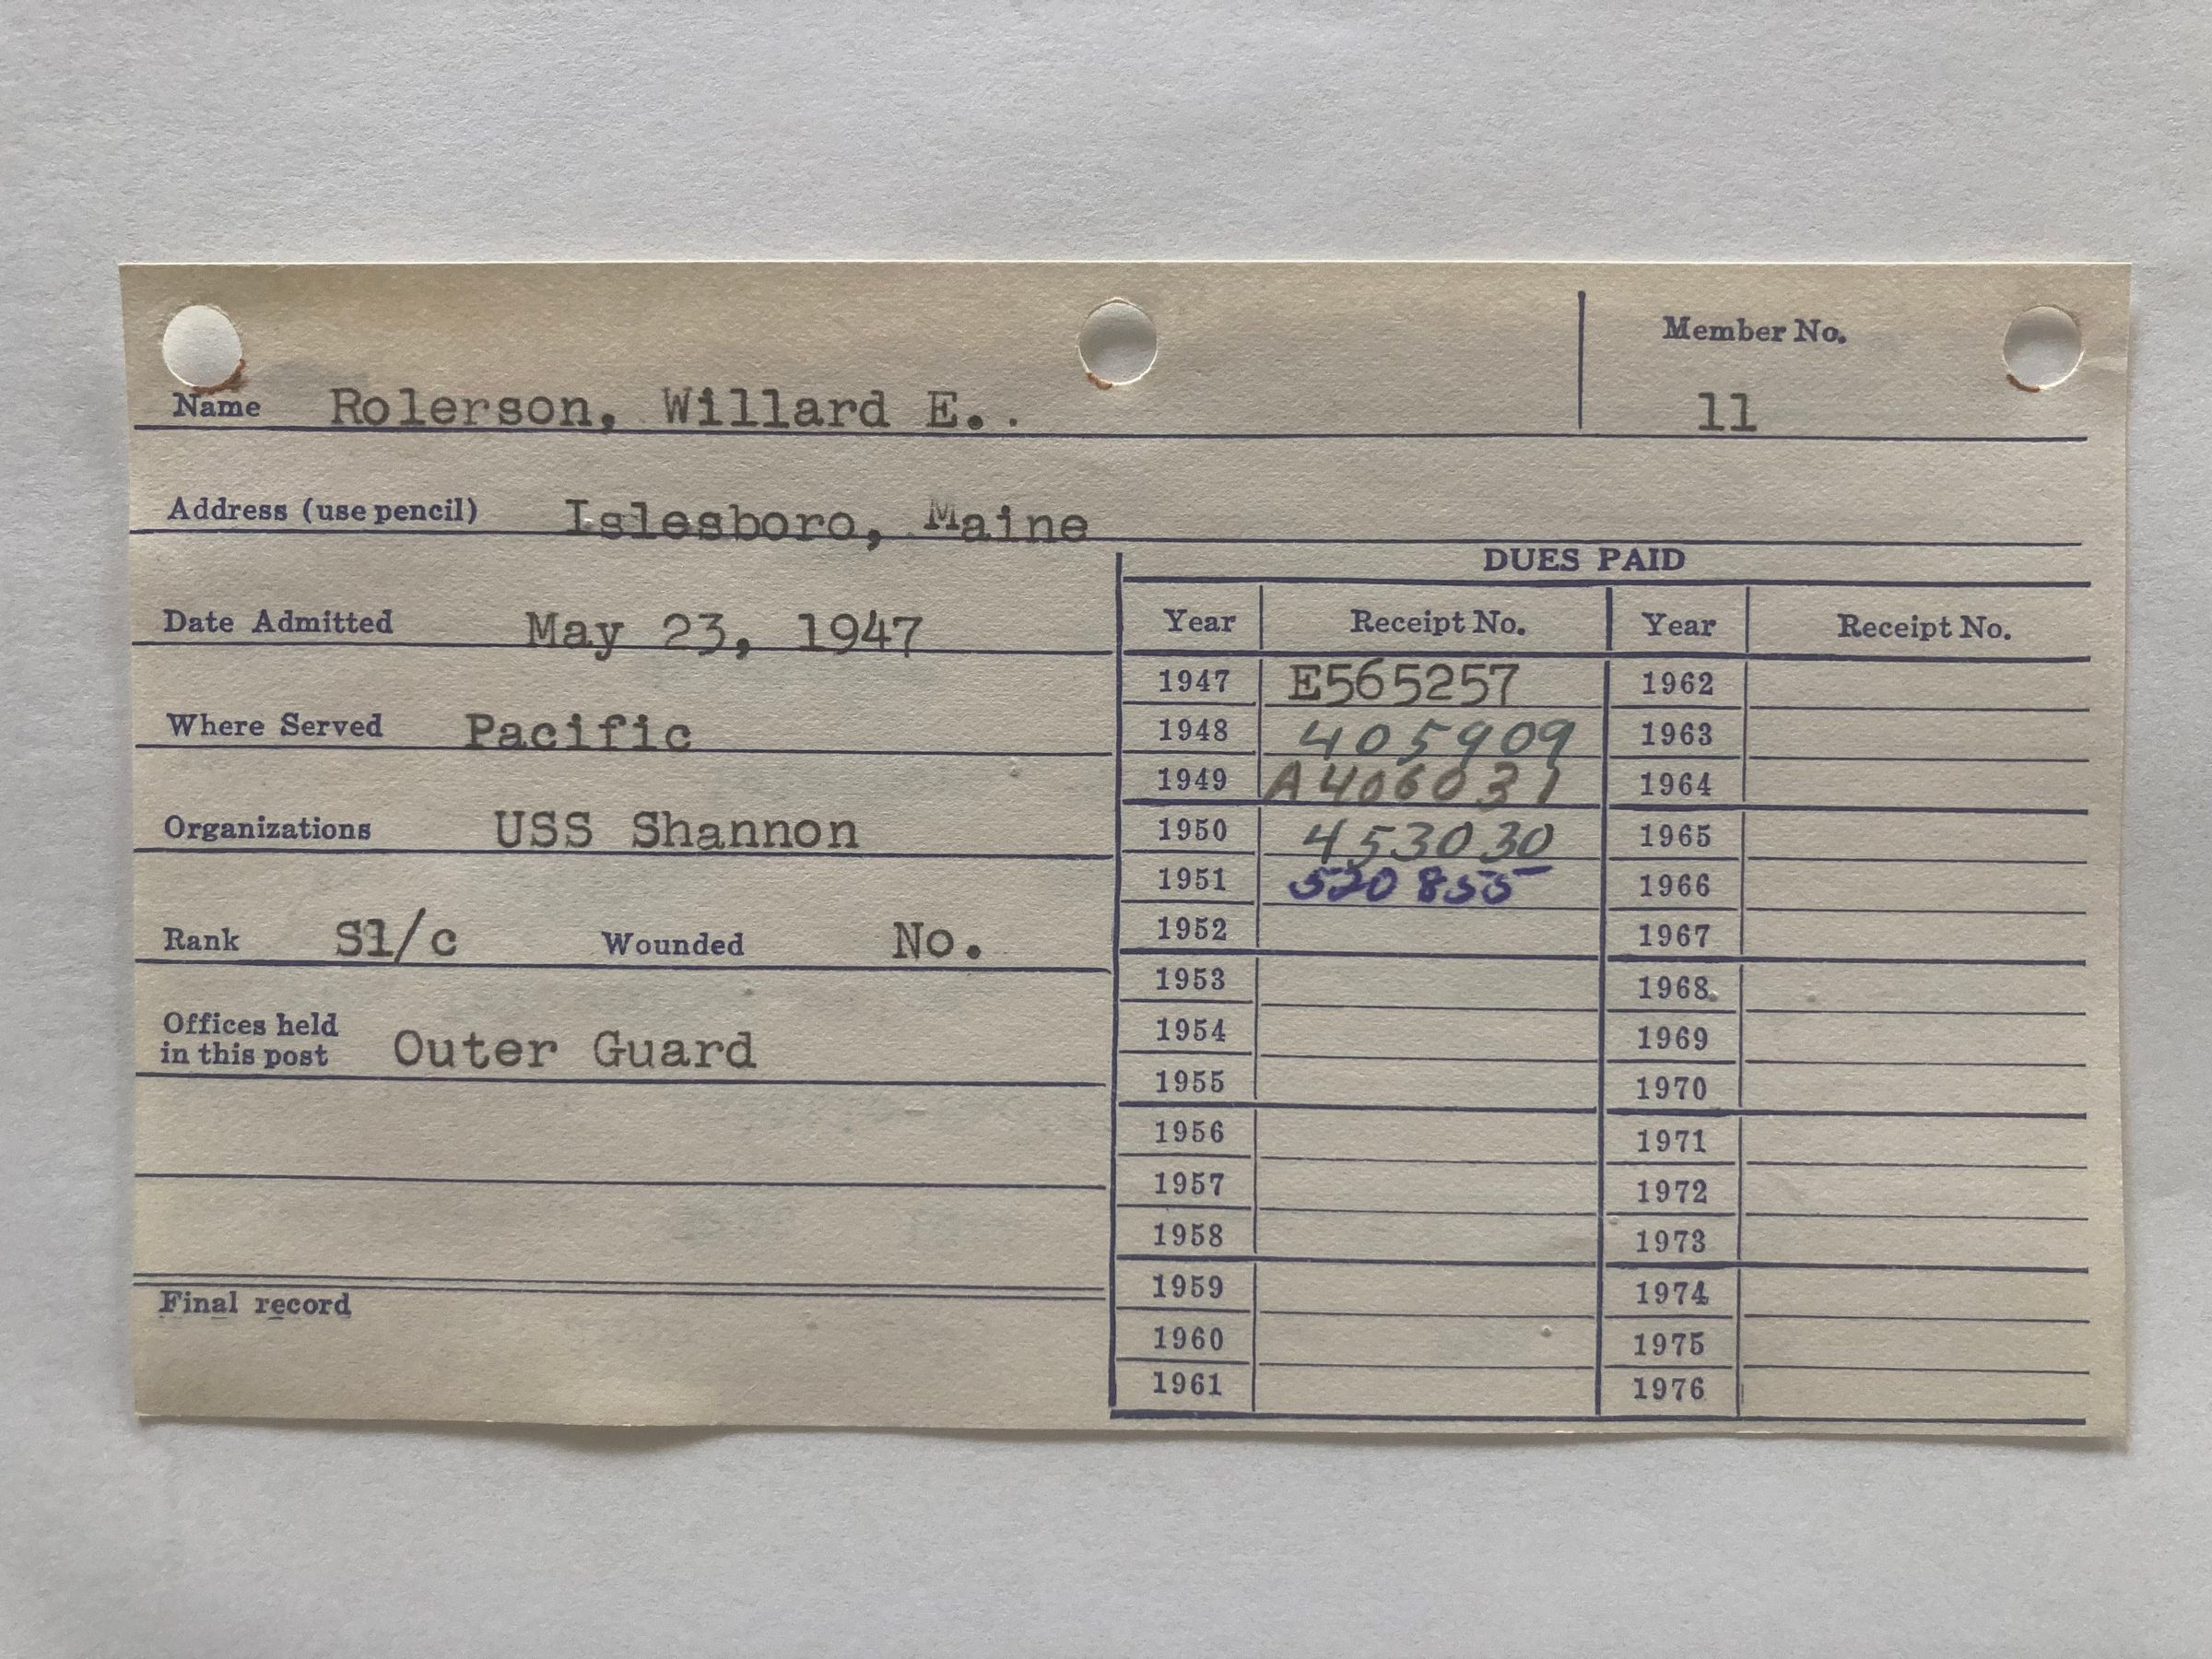 Member No.
Name Rolerson, Willard E. . 11
Address (use pencil) Islesboro, Maine
DUES PAID
Date Admitted May 23, 1947
Year Receipt No. Year Receipt No.
1947 E565257 1962
Where Served Pacific
1948 405909 1963
1949 A406031 1964
Organizations USS Shannon
1950 453030 1965
1951 520855 1966
Rank S1/c Wounded No.
1952 1967
1953 1968
Offices held
in this post Outer Guard
1954 1969
1955 1970
1956 1971
1957 1972
1958 1973
Final record
1959 1974
1960 1975
1961 1976